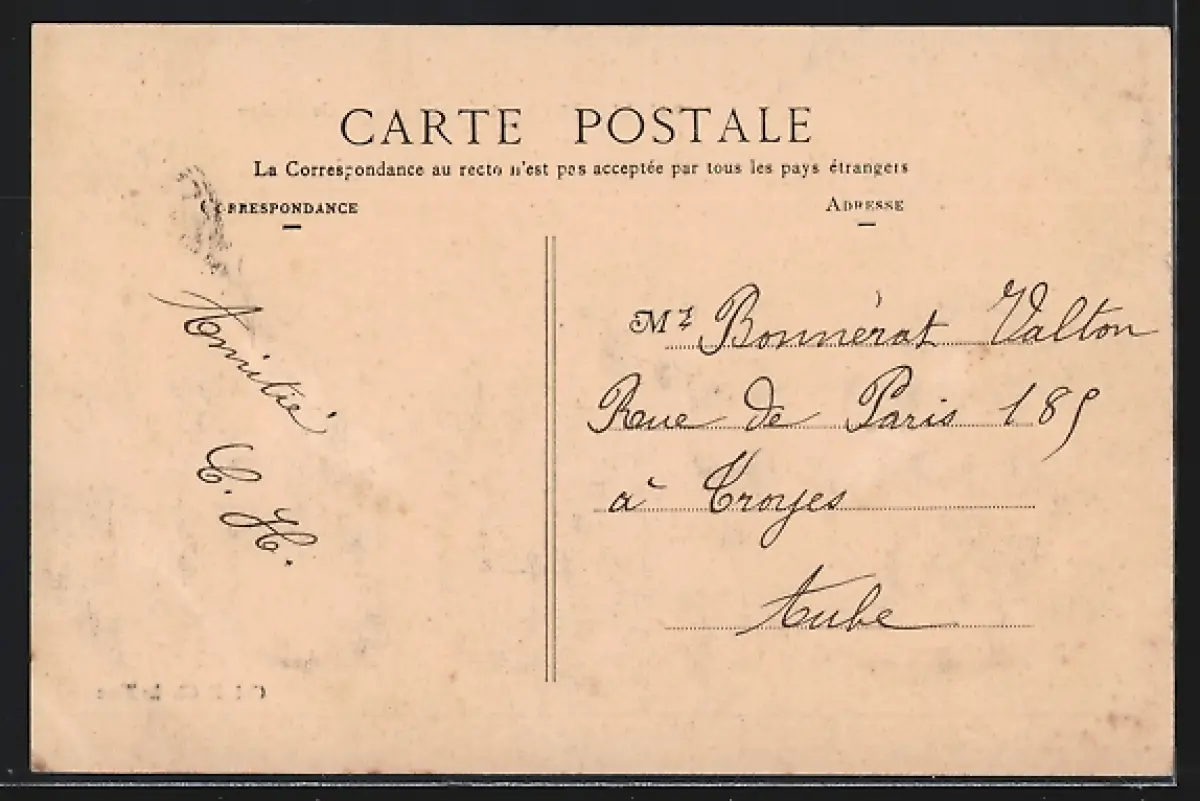 CARTE POSTALE
La Correspondance au recto n'est pas acceptée par tous les pays étrangers
CORRESPONDANCE
ADRESSE
Amitié
C. H.
Mr Bonnérat Valton
Rue de Paris 185
à Troyes
Aube